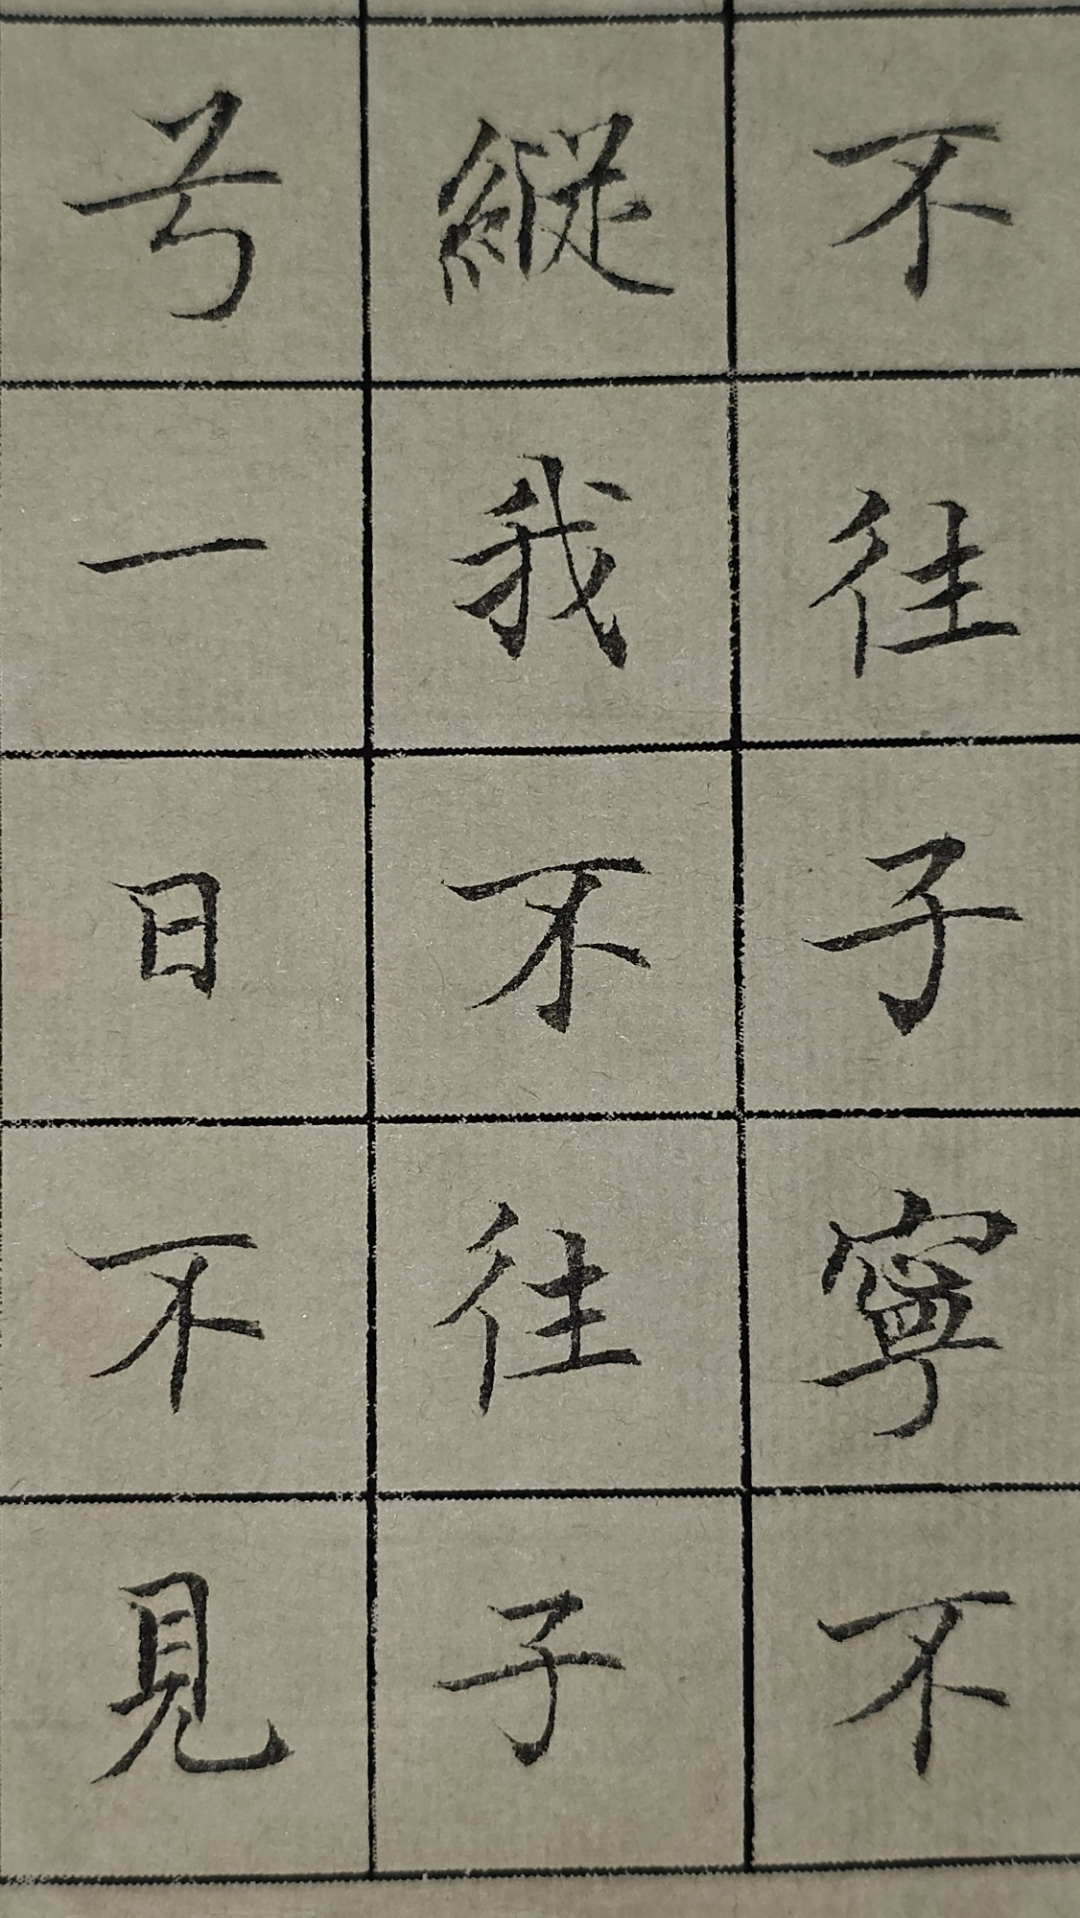 不往子寧不
縱我不往子
兮一日不見